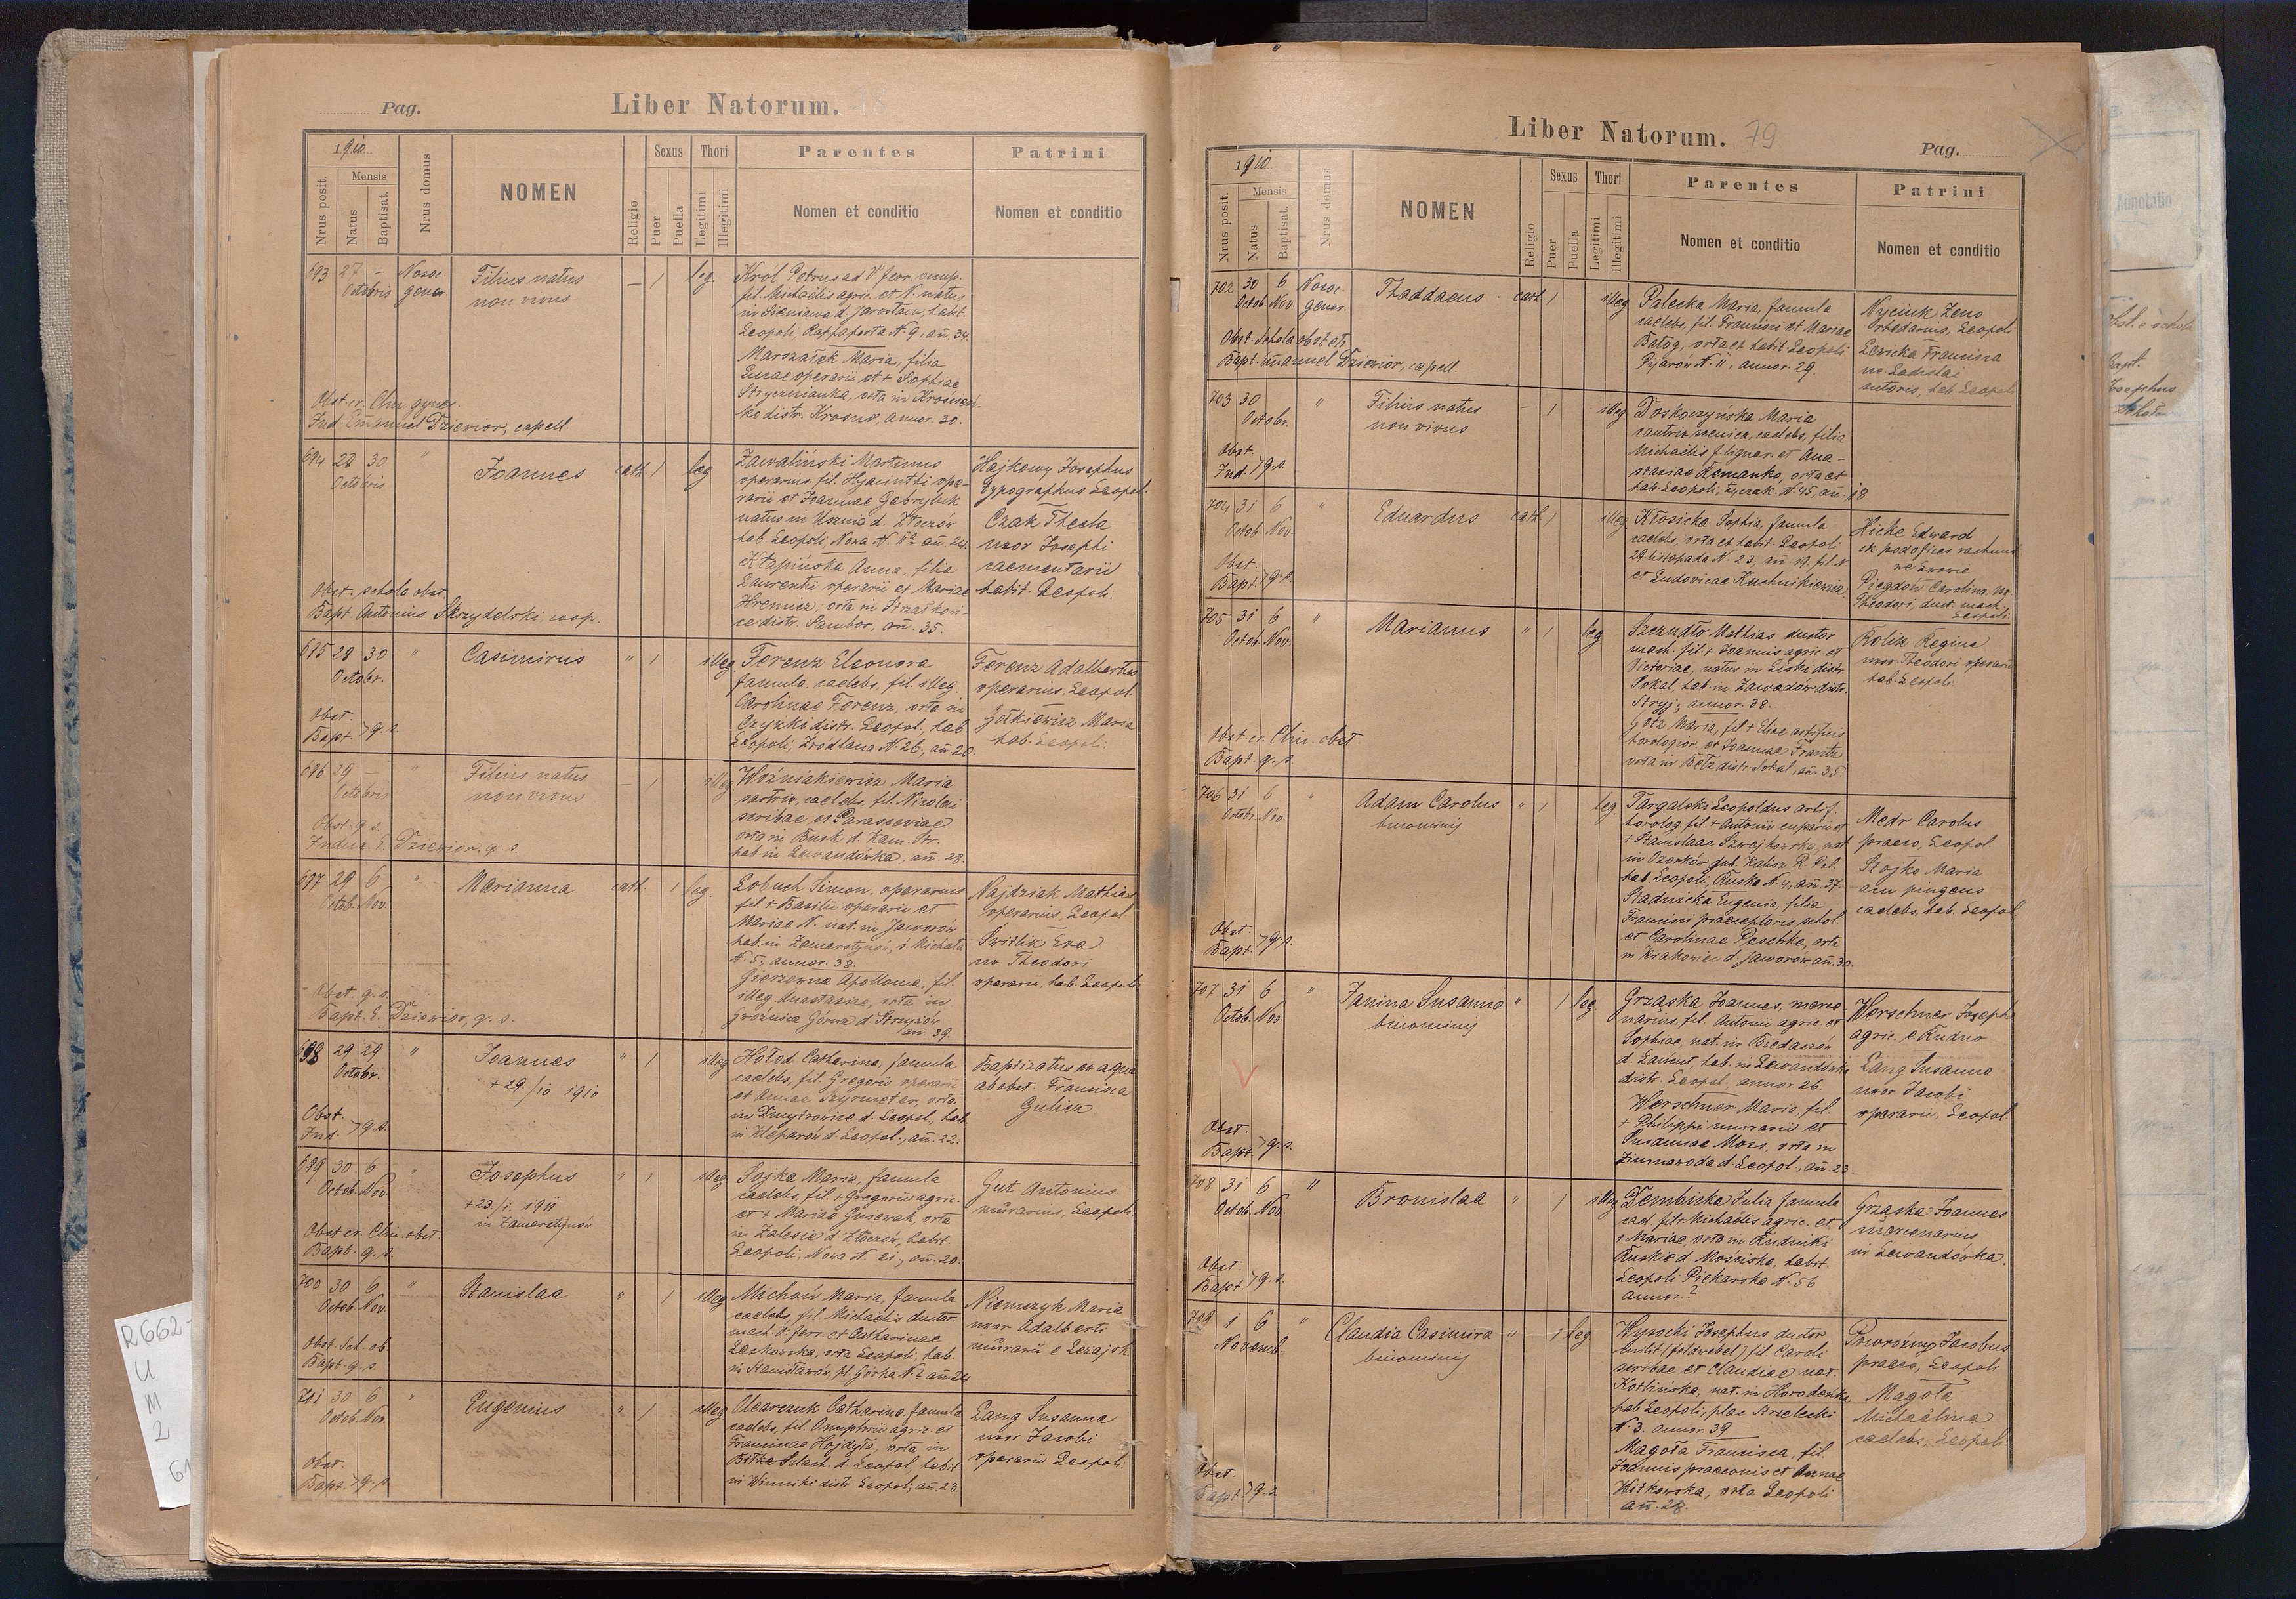 Pag.
Liber Natorum. 78
1910
Nrus posit.
Mensis
Natus
Baptisat.
Nrus domus
NOMEN
Religio
Sexus
Puer
Puella
Thori
Legitimi
Illegitimi
Parentes
Nomen et conditio
Patrini
Nomen et conditio
693 27 – Nosoc. Filius natus — 1 leg.
Octobris gener. non vivus
Król Petrus ad V. ferr. 
fil. Michaelis agric. et N. natus
in Sieniawa d. Jarosław, habit.
Leopoli, Rappaporta N. 9, an. 34.
Marszałek Maria, filia
operarii et + Sophiae
orta in
distr. Krosno, annor. 30.
Obst. ex Clin. gynec.
Ind. Emanuel Dziewior, capell.
694 28 30 " Joannes cath. 1 leg.
Octobris
Zawaliński Martinus
operarius fil. Hyacinthi ope-
rarii et Joannae Gabryluk
natus in Usznia d. Złoczów
hab. Leopoli, Nowa N. an. 24.
Anna, filia
Laurentii operarii et Mariae
Hremier, orta in
distr. Sambor, an. 35.
Hajkowy Josephus
typographus Leopol.
Czak Thecla
uxor Josephi
caementarii
habit. Leopoli.
Obst. schola obst.
Bapt. Antonius Skrzydelski, coop.
695 28 30 " Casimirus " 1 illeg.
Octobr.
Ferenz Eleonora
famula, caelebs, fil. illeg.
Carolinae Ferenz, orta in
Czyżki distr. Leopol., hab.
Leopoli, Źródlana N. 26, an. 20.
Ferenz Adalbertus
operarius, Leopol.
Żółkiewicz Maria
hab. Leopoli.
Obst.
Bapt. > q. s.
696 29 – " Filius natus — 1 illeg.
Octobris non vivus
Woźniakiewicz Maria
sartrix, caelebs, fil. Nicolai
scribae et Parasceviae
orta in Busk d. Kam. Str.
hab. in Lewandówka, an. 28.
Obst. q. s.
Induc. E. Dziewior. q. s.
697 29 6 " Marianna cath. 1 leg.
Octob. Nov.
Łobuch Simon, operarius
fil. + Basilii operarii et
Mariae N. nat. in Jaworów
hab. in Zamarstynów, ś. Michała
N. 5, annor. 38.
Apollonia, fil.
illeg. Anastasiae, orta in
Górna d. Strzyżów
an. 39.
Najdziak Mathias
operarius, Leopol.
Switlik Eva
ux. Theodori
operarii, hab. Leopol.
Obst. q. s.
Bapt. E. Dziewior, q. s.
698 29 29 " Joannes " 1 illeg.
Octobr.
+ 29/10 1910
Hołod Catharina, famula
caelebs, fil. Gregorii operarii
et Annae Szyrmeter, orta
in Dmytrowice d. Leopol., hab.
in Kleparów d. Leopol., an. 22.
Baptizatus ex aqua
ab obst. Francisca
Gulicz
Obst.
Ind. > q. s.
699 30 6 " Josephus " 1 illeg.
Octob. Nov.
+ 23/1. 1911
in Zamarstynów
Sojka Maria, famula
caelebs, fil. + Gregorii agric.
et + Mariae Gniewak, orta
in Zalesie d. Złoczów, habit.
Leopoli, Nowa N. 21, an. 20.
Gut Antonius
murarius, Leopoli
Obst. ex Clin. obst.
Bapt. q. s.
700 30 6 " Stanislaa " 1 illeg.
Octob. Nov.
Michoń Maria, famula
caelebs, fil. Michaelis ductor.
mach. v. ferr. et Catharinae
Laskowska, orta Leopoli, hab.
in Stanisławów, pl. Górka N. ? an. 24
Niemczyk Maria
uxor Adalberti
murarii e Leżajsk.
Obst. Sch. ob.
Bapt. q. s.
701 30 6 " Eugenius " 1 illeg.
Octob. Nov.
Olearczuk Catharina, famula
caelebs, fil. Onuphrii agric. et
Franciscae Hojdyła, orta in
Biłka Szlach. d. Leopol., habit.
in Winniki distr. Leopol., an. 23.
Lang Susanna
uxor Jacobi
operarii Leopoli.
Obst.
Bapt. > q. s.
Liber Natorum. 79
Pag.
1910
Nrus posit.
Mensis
Natus
Baptisat.
Nrus domus
NOMEN
Religio
Sexus
Puer
Puella
Thori
Legitimi
Illegitimi
Parentes
Nomen et conditio
Patrini
Nomen et conditio
702 30 6 Nosoc. Thaddaeus cath. 1 illeg.
Octob. Nov. gener.
Palecka Maria, famula
caelebs, fil. Francisci et Mariae
Batog, orta et habit. Leopoli
Pijarów N. 11, annor. 29.
Nyciuk Zeno
Leopoli.
Lewicka Francisca
ux. Ladislai
sutoris, hab. Leopoli
Obst. Schola obstetr.
Bapt. Emanuel Dziewior, capell.
703 30 " Filius natus — 1 illeg.
Octobr. non vivus
Doskoczyńska Maria
cantrix scenica, caelebs, filia
Michaelis f. lignar. et Ana-
stasiae Romanko, orta et
hab. Leopoli, Łyczak. N. 45, an. 18
Obst.
Ind. > q. s.
704 31 6 " Eduardus cath. 1 illeg.
Octob. Nov.
Kłosicka Sophia, famula
caelebs, orta et habit. Leopoli
29 listopada N. 23, an. 19, fil. N.
et Ludovicae Kuchnikiewicz.
Hicke Edward
ck podoficer rachunk.
we Lwowie
Piegdoń Carolina, ux.
Theodori, duct. mach.
Leopoli.
Obst.
Bapt. > q. s.
705 31 6 " Marianus " 1 leg.
Octob. Nov.
Szczudło Mathias ductor
mach. fil. + Joannis agric. et
Victoriae, natus in Liski distr.
Sokal, hab. in Zawadów distr.
Stryj, annor. 38.
Götz Maria, fil. + Eliae artificis
horologior. et Joannae Frantz
orta in Bełz distr. Sokal, an. 35.
Rolik Regina
uxor Theodori operarii
hab. Leopoli.
Obst. ex Clin. obst.
Bapt. q. s.
706 31 6 " Adam Carolus " 1 leg.
Octobr. Nov. binominis
Targalski Leopoldus artif.
horolog. fil. + Antonii cuparii et
+ Stanislaae Szwejkowska, nat.
in Ozorków gub. Kalisz R. Pol.
hab. Leopoli, Ruska N. 4, an. 37.
Stadnicka Eugenia, filia
Francisci praeceptoris schol.
et Carolinae Peschke, orta
in Krakowiec d. Jaworów an. 30.
Medr Carolus
praeco, Leopol.
Stojko Maria
acu pingens
caelebs, hab. Leopol.
Obst.
Bapt. > q. s.
707 31 6 " Janina Susanna " 1 leg.
Octob. Nov. binominis
Grząska Joannes, merce-
narius, fil. Antonii agric. et
Sophiae, nat. in Biedaczów
d. Łańcut, hab. in Lewandówka
distr. Leopol., annor. 26.
Werschner Maria, fil.
+ Philippi murarii et
Susannae Moos, orta in
Zimnawoda d. Leopol., an. 23.
Werschner Josepha
agric. e Rudno
Lang Susanna
uxor Jacobi
operarii, Leopol.
V
Obst.
Bapt. > q. s.
708 31 6 " Bronislaa " 1 illeg.
Octob. Nov.
Dembicka Julia famula
cael. fil. + Michaelis agric. et
+ Mariae, orta in Rudniki
Ruskie d. Mościska, habit.
Leopoli Piekarska N. 56
annor. ?
Grząska Joannes
mercenarius
in Lewandówka.
Obst.
Bapt. > q. s.
709 1 6 " Claudia Casimira " 1 leg
Novemb. binominis
Wysocki Josephus ductor
milit. (feldwebel) fil. Caroli
scribae et Claudiae nat.
Kotlińska, nat. in Horodenka
hab. Leopoli, plac Strzelecki
N. 3. annor. 39
Magoła Francisca, fil.
Joannis praeconis et Annae
Witkowska, orta Leopoli
an. 28.
Powroźny Jacobus
praeco, Leopoli
Magoła
Michaëlina
caelebs, Leopoli.
Obst.
Bapt. > q. s.
Adnotatio
Obst. e schola
Bapt.
Josephus
R 662
U
M
2
61